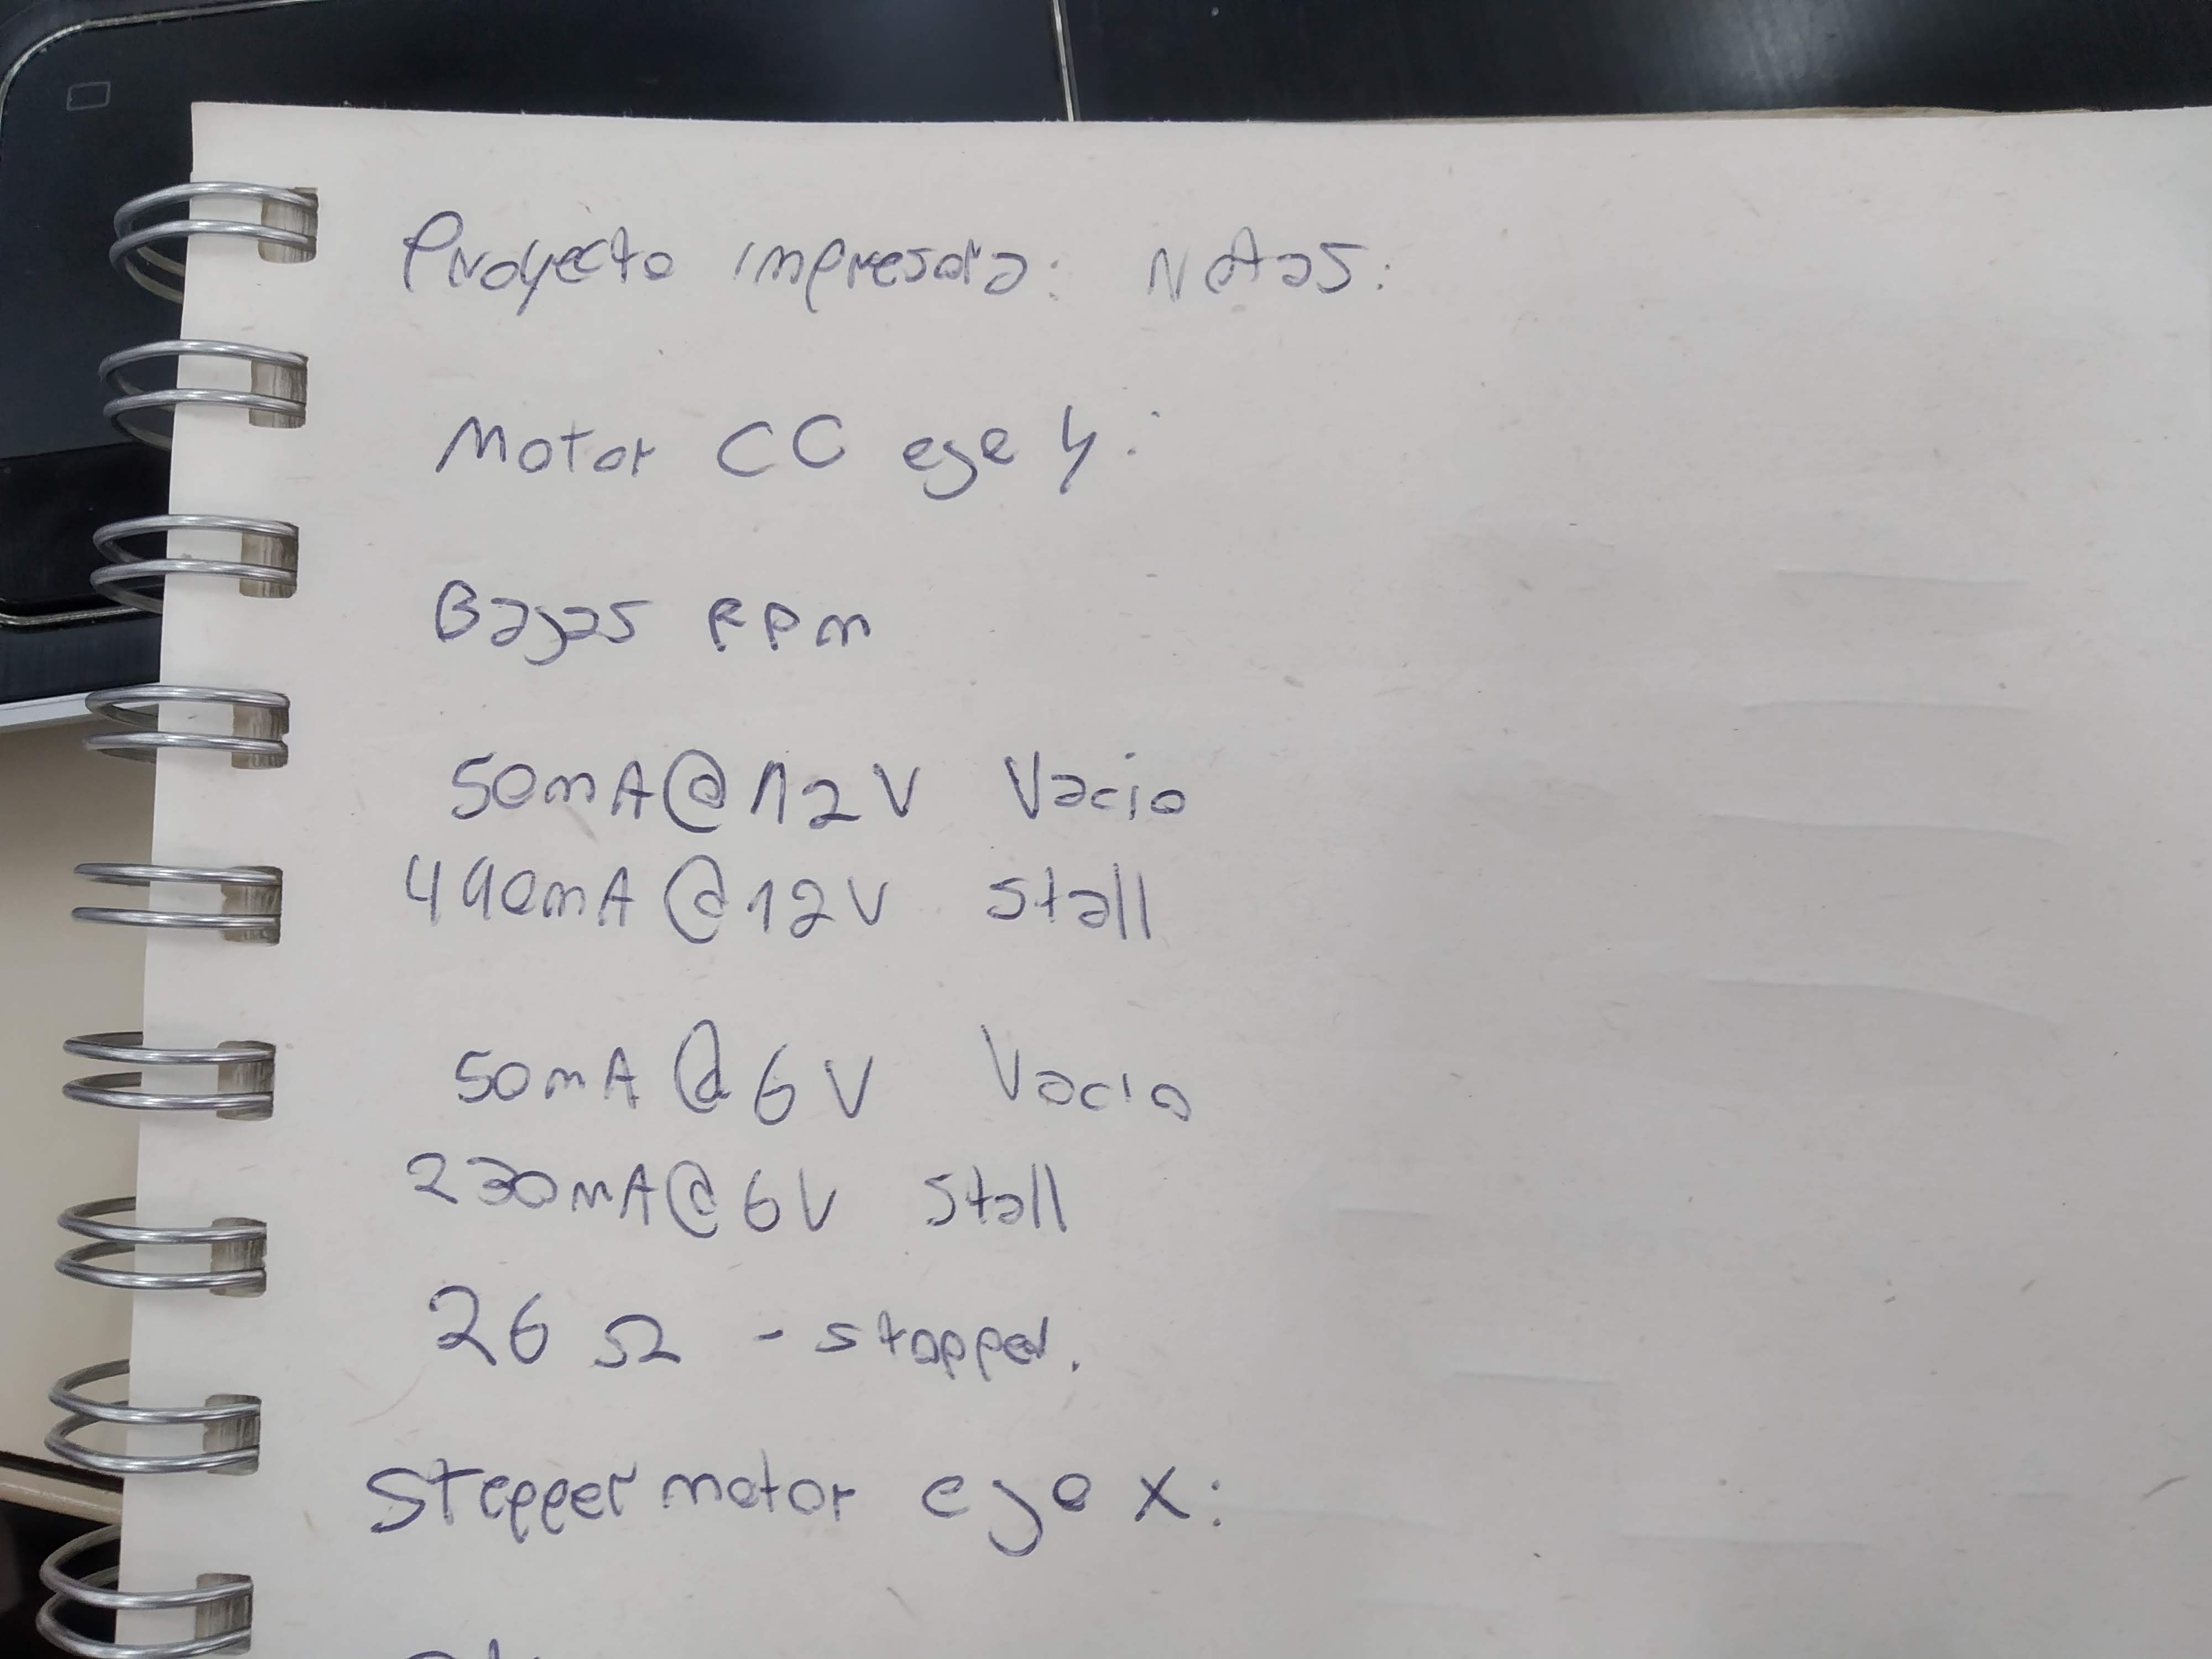 Proyecto impresora: Notas:
Motor CC eje y:
Bajas RPM
50mA@12V Vacio
490mA@12V Stall
50mA@6V Vacio
230mA@6V Stall
26 Ω - stopped.
Stepper motor eje X: